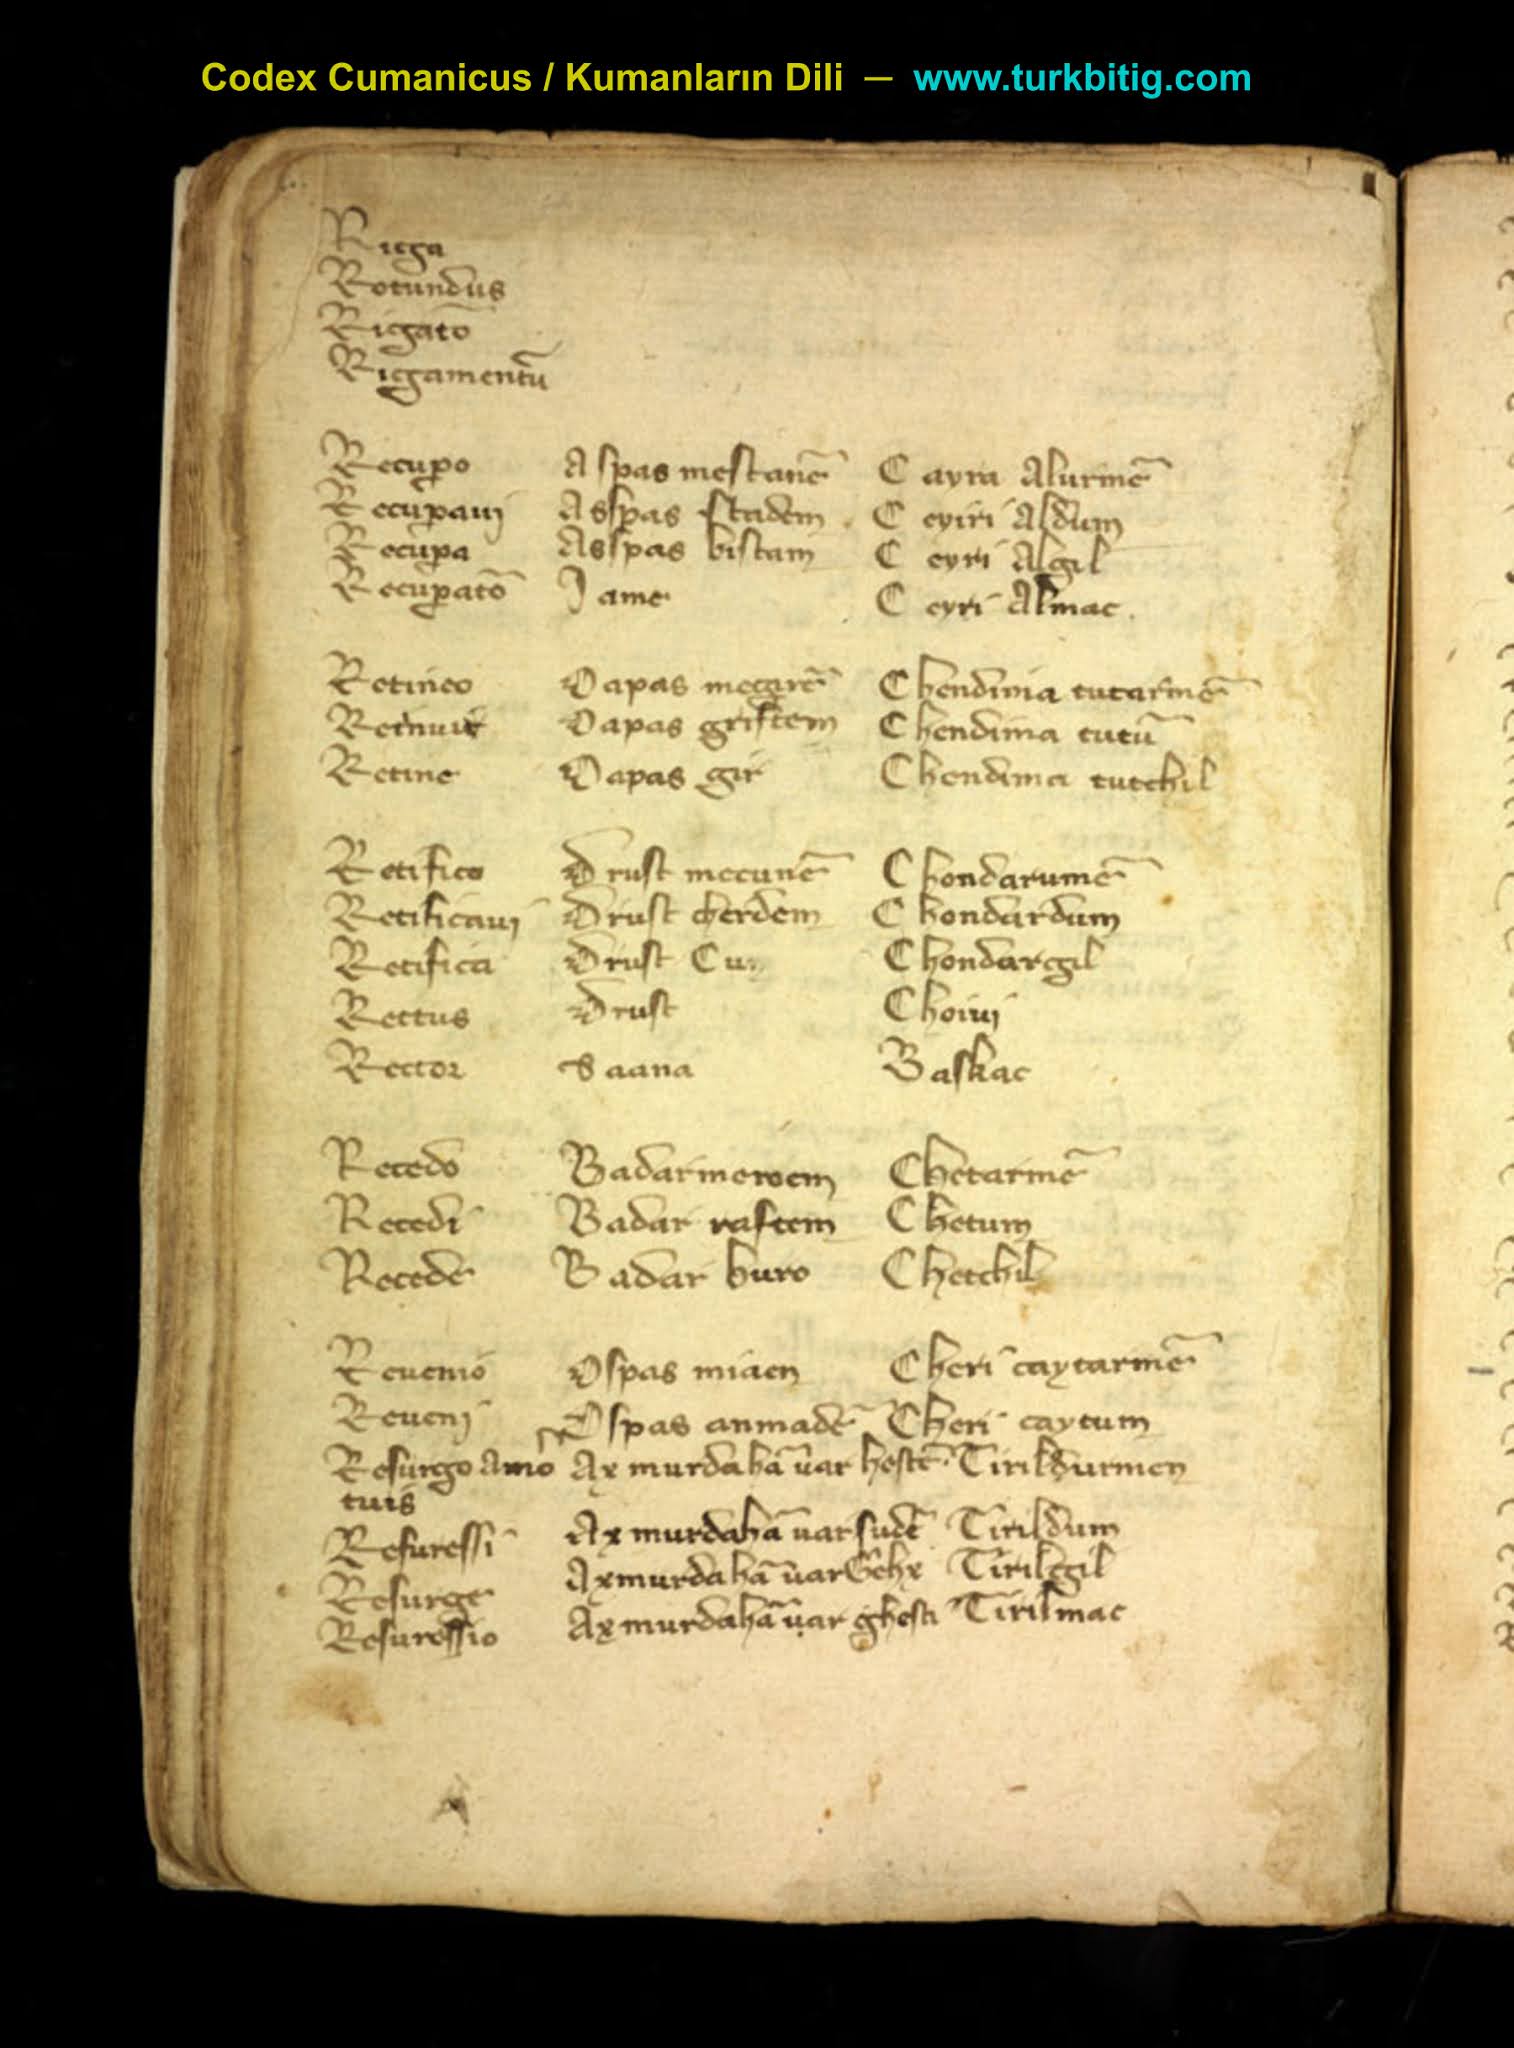 Codex Cumanicus / Kumanların Dili — www.turkbitig.com
Ricga
Rotundus
Rigatō
Ricgamentū
Recupo Aspas mestanē Cayra Alurmē
Recupaui Asspas stadem Ceyiri Aldum
Recupa Asspas bistam Ceyri Algil
Recupatō Iame Ceyri Almac.
Retineo Dapas megirē Chendima tutarmē
Dapas griftem Chendima tutū
Retine Dapas gir Chendima tutchil
Retifico Drust mecunē Chondarumē
Retificaui Drust cherdem Chondardum
Retifica Drust Chondargil
Rettus Drust Choiui
Rector Saana Baskac
Recedo Badarmeroem Chetarmē
Recedi Badar raftem Chetum
Recede Badar buro Chetchil
Reuenio Ospas miaen Cheri caytarmē
Reueni Ospas anmadē Cheri caytum
Resurgo Amor Ax murdahā uar hestē Tirildurmen
tuis
Resuressi Ax murdahā uar sudē Tirildum
Resurge Axmurdahā uar Tirilggil
Resuressio Axmurdahā uar ghesti Tirilmac